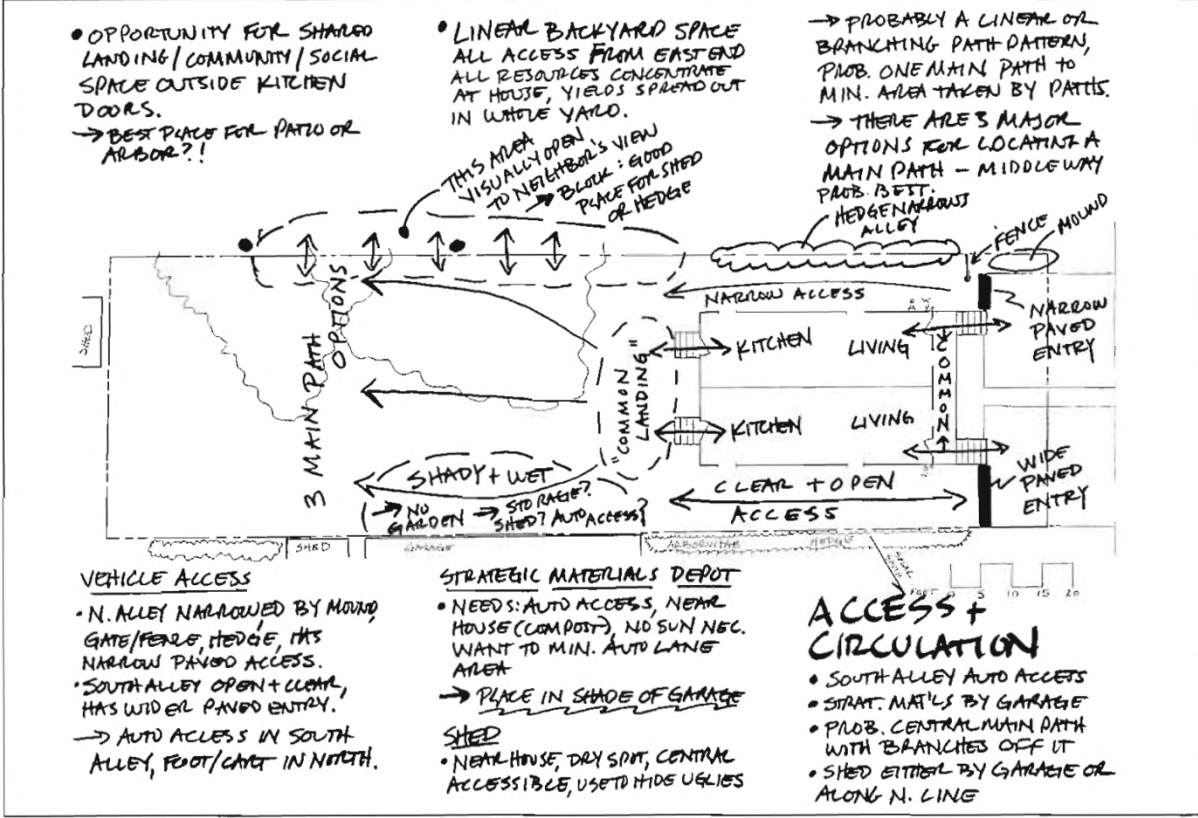 • OPPORTUNITY FOR SHARED
LANDING/COMMUNITY/SOCIAL
SPACE OUTSIDE KITCHEN
DOORS.
→ BEST PLACE FOR PATIO OR
ARBOR?!
• LINEAR BACKYARD SPACE
ALL ACCESS FROM EAST END
ALL RESOURCES CONCENTRATE
AT HOUSE, YIELDS SPREAD OUT
IN WHOLE YARD.
→ PROBABLY A LINEAR OR
BRANCHING PATH PATTERN,
PROB. ONE MAIN PATH TO
MIN. AREA TAKEN BY PATHS.
→ THERE ARE 3 MAJOR
OPTIONS FOR LOCATING A
MAIN PATH – MIDDLE WAY
PROB. BEST.
THIS AREA
VISUALLY OPEN
TO NEIGHBOR'S VIEW
→ BLOCK: GOOD
PLACE FOR SHED
OR HEDGE
HEDGE NARROWS
ALLEY
FENCE
MOUND
NARROW ACCESS
NARROW
PAVED
ENTRY
SHED
3 MAIN PATH
OPTIONS
"COMMON
LANDING"
KITCHEN
LIVING
COMMON
KITCHEN
LIVING
WIDE
PAVED
ENTRY
SHADY + WET
→ NO
GARDEN
→ STORAGE?
SHED? AUTO ACCESS?
CLEAR + OPEN
ACCESS
SHED
GARAGE
ARBORVITAE HEDGE
FEET 0 5 10 15 20
VEHICLE ACCESS
• N. ALLEY NARROWED BY MOUND,
GATE/FENCE, HEDGE, HAS
NARROW PAVED ACCESS.
• SOUTH ALLEY OPEN + CLEAR,
HAS WIDER PAVED ENTRY.
→ AUTO ACCESS IN SOUTH
ALLEY, FOOT/CART IN NORTH.
STRATEGIC MATERIALS DEPOT
• NEEDS: AUTO ACCESS, NEAR
HOUSE (COMPOST), NO SUN NEC.
WANT TO MIN. AUTO LANE
AREA
→ PLACE IN SHADE OF GARAGE
SHED
• NEAR HOUSE, DRY SPOT, CENTRAL
ACCESSIBLE, USE TO HIDE UGLIES
ACCESS +
CIRCULATION
• SOUTH ALLEY AUTO ACCESS
• STRAT. MAT'LS BY GARAGE
• PROB. CENTRAL MAIN PATH
WITH BRANCHES OFF IT
• SHED EITHER BY GARAGE OR
ALONG N. LINE